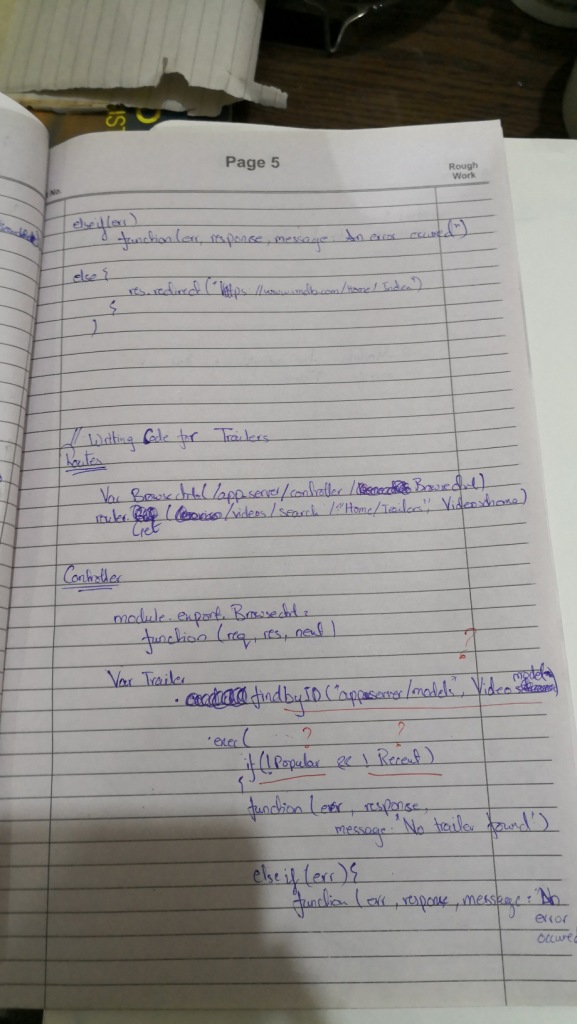 Page 5
Rough
Work
No.
else if(err)
function (err, response, message: An error occured")
else {
res.redirect ("https://www.imdb.com/home/Index")
}
}
// Writing Code for Trailers
Routes
Var Browsectrl (/app.server/controller / Browsectrl)
router. (/videos/search /"Home/Trailers", Videoshome)
Get
Controller
module.export. Browsectrl =
function (req, res, next)
?
Var Trailer
model
. findbyID ("appserver/models", Videos
? ?
.exec (
if (!Popular && ! Recent)
{
function (err, response,
message: 'No trailer found')
else if (err) {
function (err, response, message: 'No
error
occured